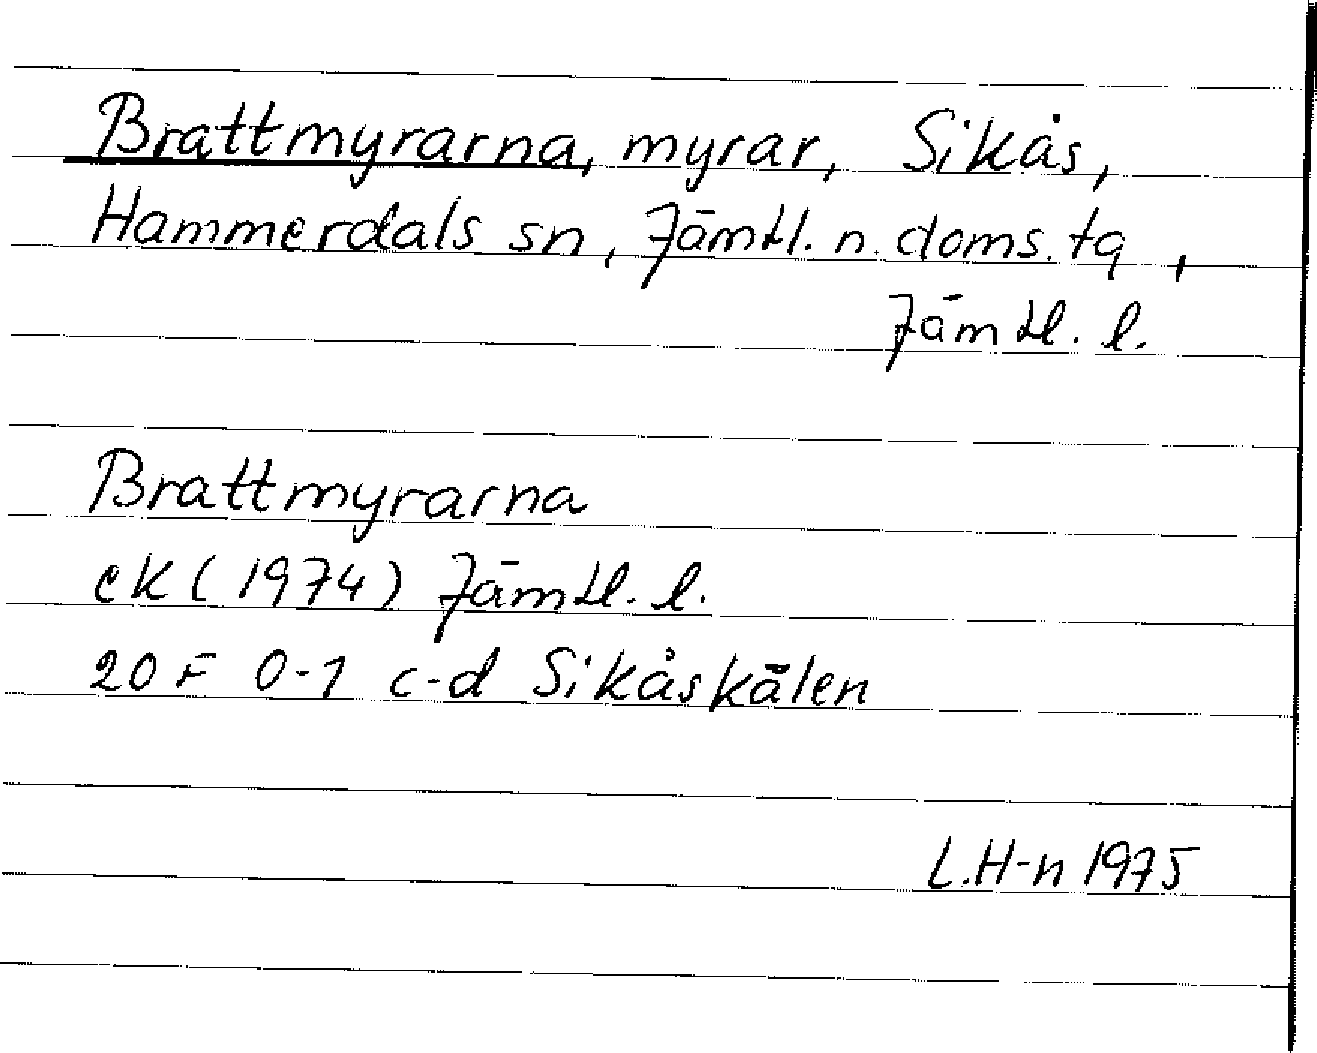 Brattmyrarna, myrar, Sikås,
Hammerdals sn, Jämtl. n. doms. tg,
Jämtl. l.
Brattmyrarna
ek (1974) Jämtl. l.
20 F 0-1 c-d Sikåskälen
L.H-n 1975